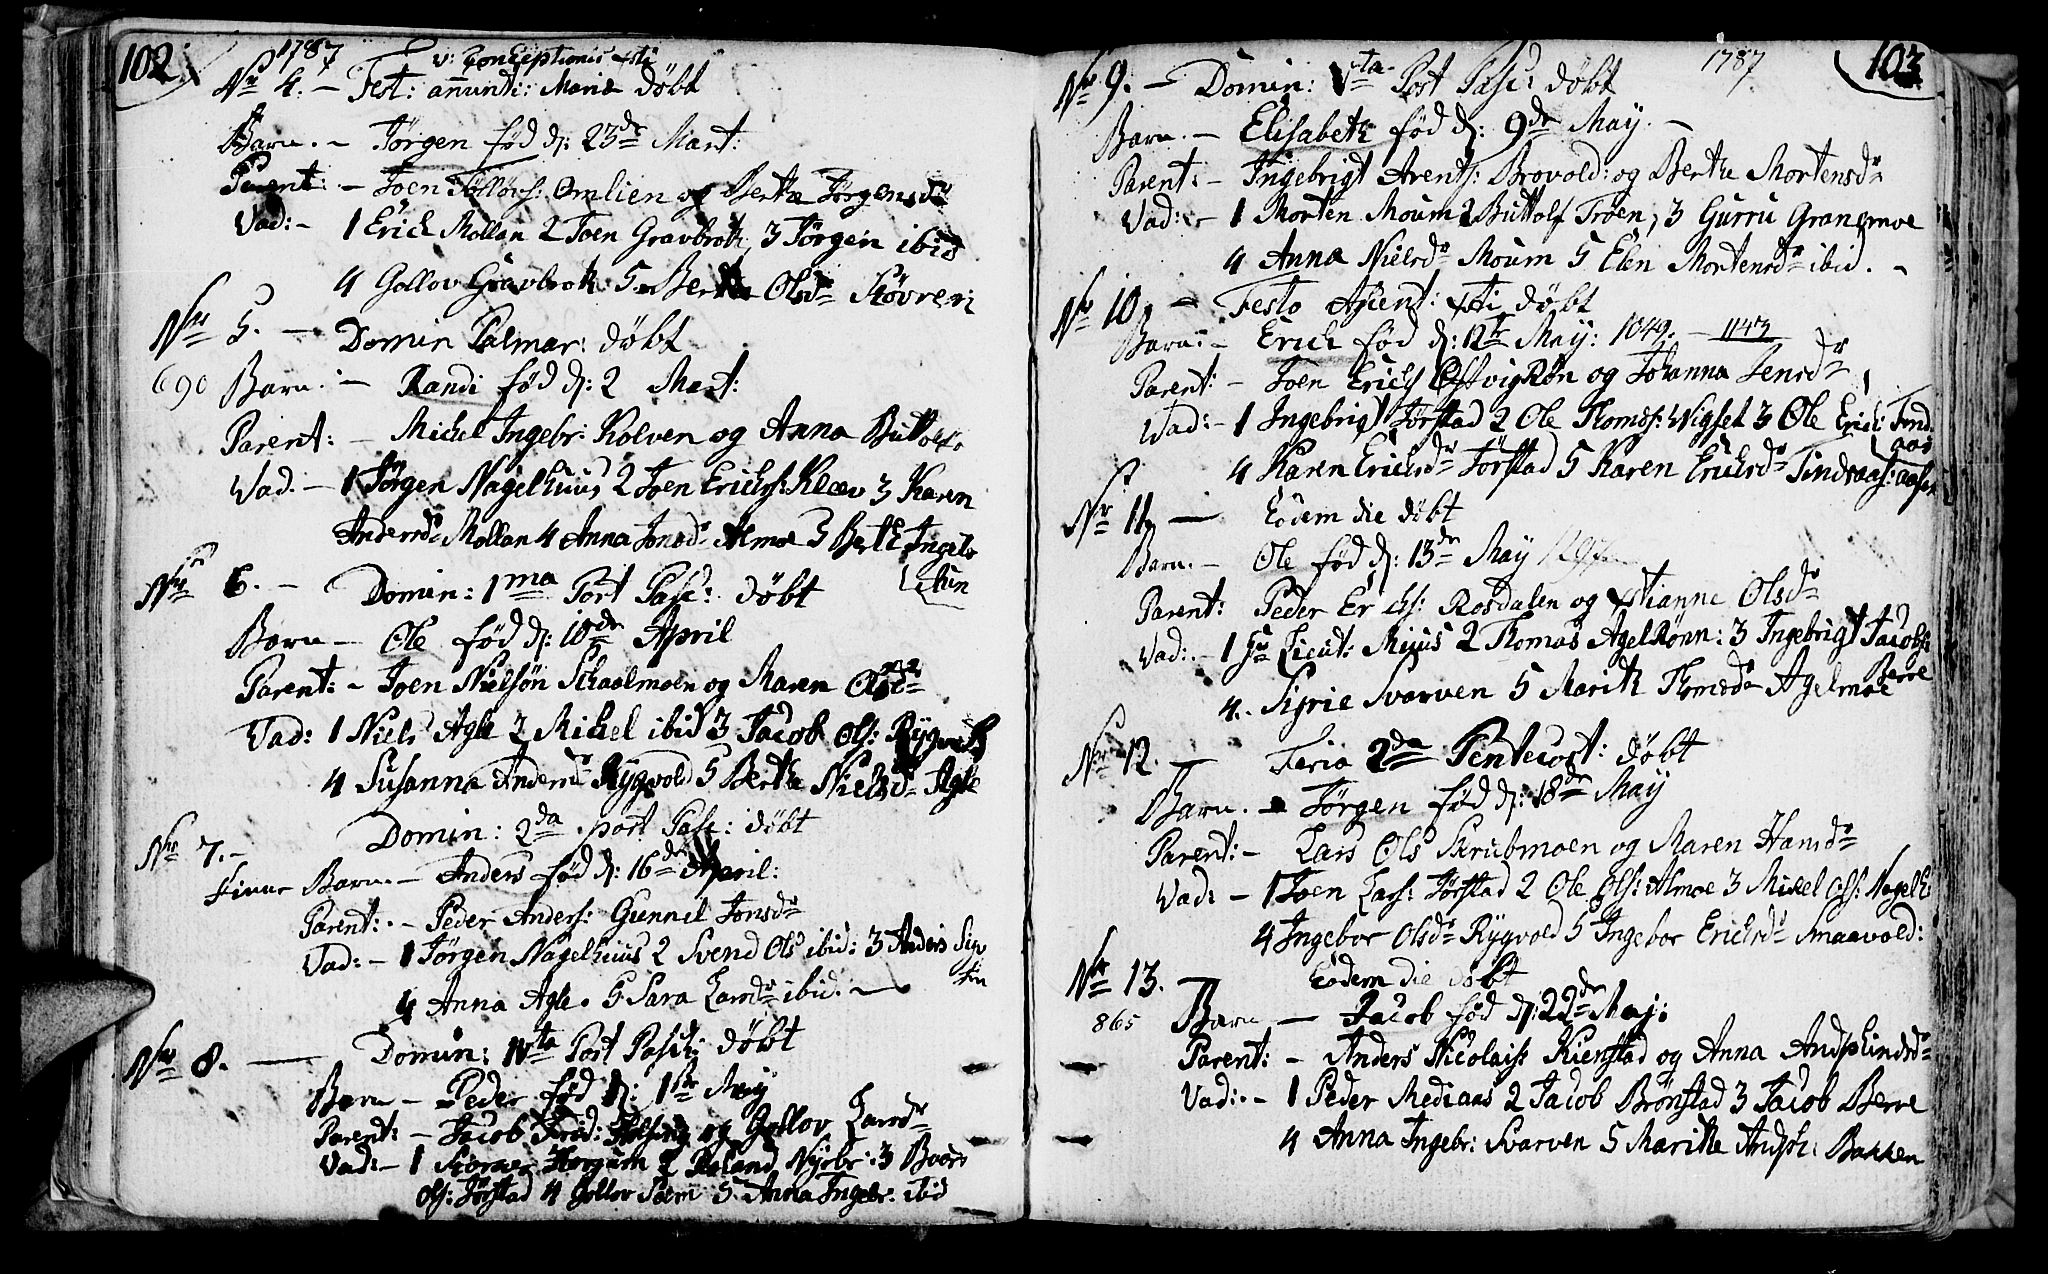 102
1787
v: Conceptionis Xsti
Nr 4. - Fest: anunti: Mariæ døbt
Barn. - Jörgen fød d: 23de Mart:
Parent: - Joen Tolløvs: Omlien og Berthe Jörgensdr
Vad: - 1 Erich Mollan 2 Joen Gravbrot, 3 Jörgen ibid
4 Gollov Gravbrok 5 Olsdr
Nr 5. - Domin Palmar: døbt
690 Barn. - Randi fød d: 2 Mart:
Parent: - Michel Ingebr: Kolven og Anna
Vad. - 1 Jörgen Nagelhuus 2 Joen Erichs: Klæv 3 Karen
Andersdr Mollan 4 Anna Jonsdr Almoe 5 Berthe Ingebr
Nr 6. - Domin: 1ma Post Pasc: døbt
Barn - Ole fød d: 10de April
Parent: - Joen Nielsön Schaalmoen og Maren Olsdr
Vad: 1 Niels Agle 2 Michel ibid 3 Jacob Ols:
4 Susanna Andersdr Rygvold 5 Berthe Nielsdr Agle
Nr 7. - Domin: 2da post Pasc: døbt
Finne Barn. - Anders fød d: 16de April:
Parent: - Peder Anders: Gunnil Jonsdr
Vad: - 1 Jörgen Nagelhuus 2 Svend Ols ibid: 3 Anders
4 Anna Agle. 5 Sara Larsdr ibid.
Nr 8. - Domin: IVta Post Pasch: døbt
Barn - Peder fød d: 1ste May
Parent: - Jacob og Gollov Larsdr
Vad: - 1 2 3
Ols: Jörstad 4 Gollov 5 Anna Ingebr: ibid
1787
103
Nr 9. - Domin: Vta Post Pasc: døbt
Barn. - Elisabeth fød d: 9de May. -
Parent: - Ingebrigt Arents: Brovold: og Berthe Mortensdr
Vad: - 1 Morten Moum 2 Buttolf Troen, 3 Gurru Granamoe
4 Anna Nielsdr Moum 5 Elen Mortensdr ibid. -
Nr 10, - Festo Ascent: Xsti døbt
Barn: - Erich fød d: 12te May: 1049. - 1143
Parent: - Joen Erichs og Johanna Jensdr
Vad: - 1 Ingebrigt Jörstad 2 Ole Thomøs: Wigset 3 Ole Erich: Tind
aas
4 Karen Erichsdr Jörstad 5 Karen Erichsdr
Nr 11, - Eodem die døbt
Barn. - Ole fød d: 13de May 1297
Parent: Peder Erichs: Rosdalen og Olsdr
Vad: - 1 Sr Lieut: 2 Thomas Agelrönn: 3 Ingebrigt Jacobs:
Berre
4. Sigrie Svarven 5 Marith Thomædr Agelmoe
Nr 12. - Feria 2da Pentecost: døbt
Barn. - Jörgen fød d: 18de May
Parent: - Lars Ols Skrubmoen og Maren Hansdr
Vad: - 1 Joen Lars: Jörstad 2 Ole Ols: Almoe 3 Michel Ols: Nagelh:
4 Ingebor Olsdr Rygvold 5 Ingebor Erichsdr Snaavold:
Nr 13. - Eodem die døbt
865 Barn - Jacob fød d: 22de Maj:
Parent: - Anders Nicolais: Kienstad og Anna
Vad: - 1 Peder Mediaas 2 Jacob Brönstad 3 Jacob Berre
4 Anna Ingebr: Svarven 5 Marithe Bakken